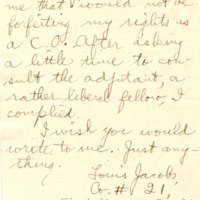 me that I would not be
forfeiting my rights as
a C.O. After asking
a little time to con-
sult the adjutant, a
rather liberal fellow, I
complied.
I wish you would
write to me. Just any-
thing.
Louis Jacobs
Co. # 21,